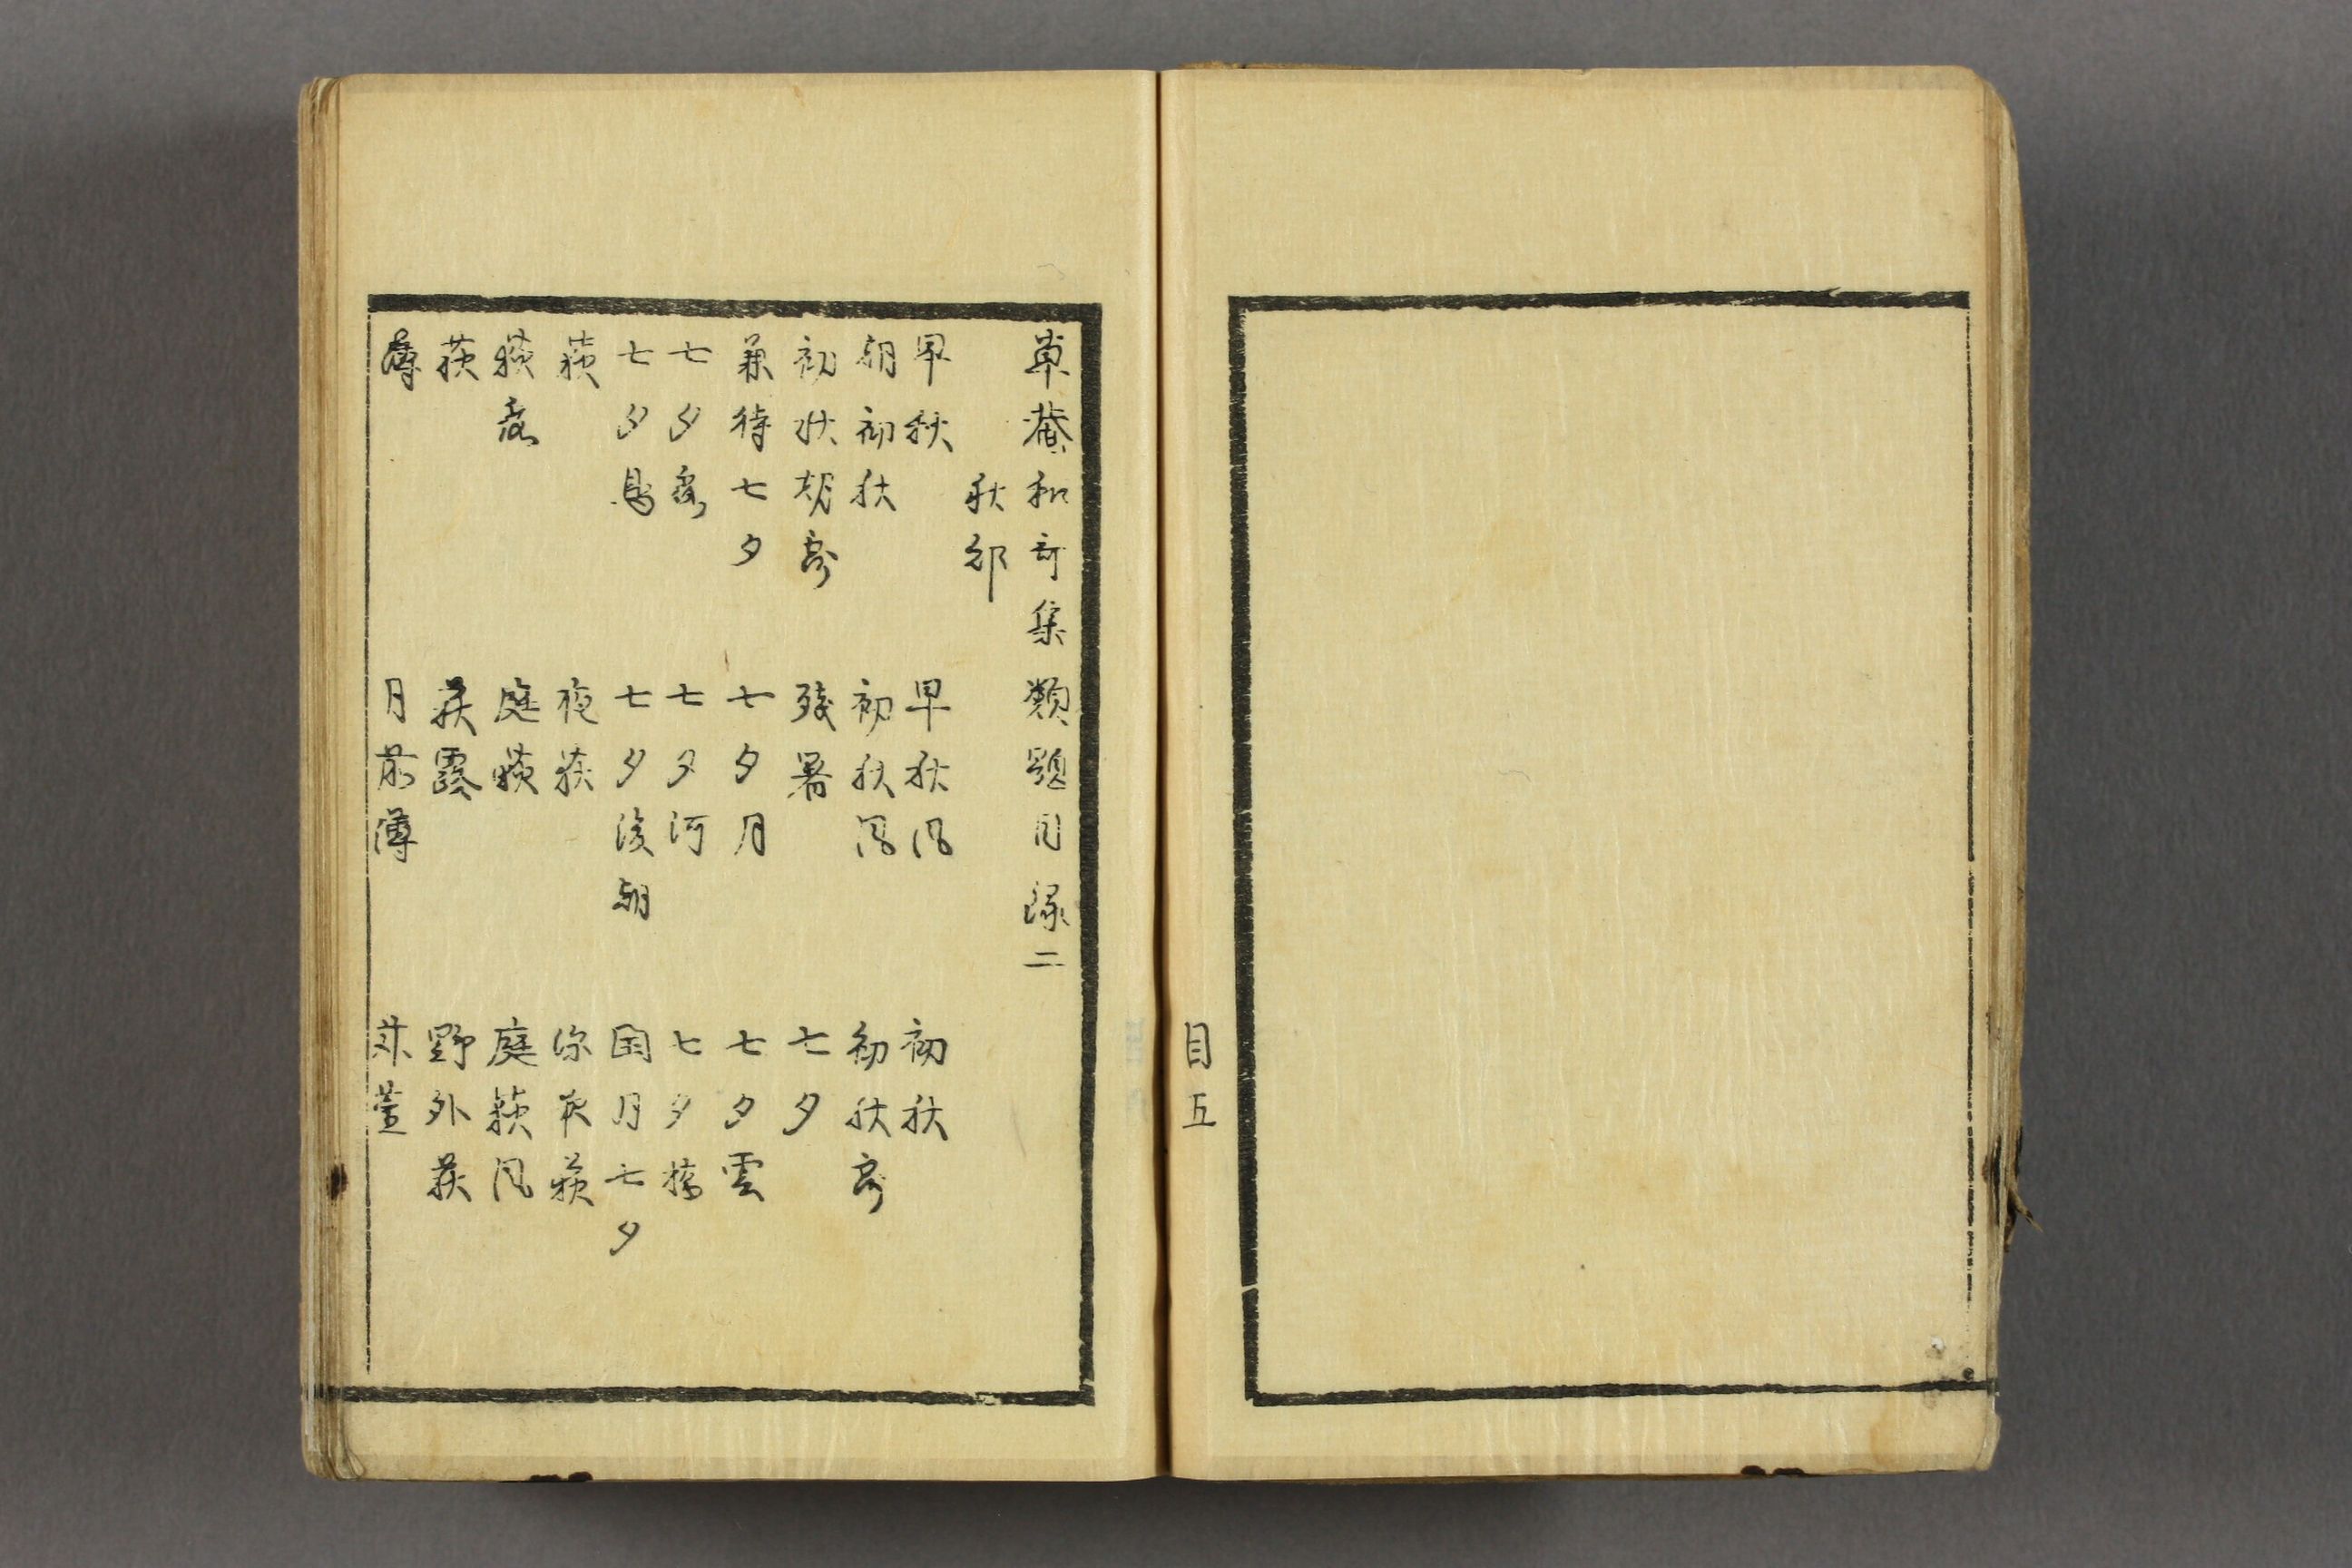 目五
草菴和哥集類題目録二
秋部
早秋　早秋風　初秋
朝初秋　初秋風　初秋露
初秋朝露　残暑　七夕
兼待七夕　七夕月　七夕雲
七夕露　七夕河　七夕橋
七夕鳥　七夕後朝　閏月七夕
荻　夜荻　深夜荻
荻　庭荻　庭荻風
萩　萩露　野外萩
薄　月前薄　苅萱